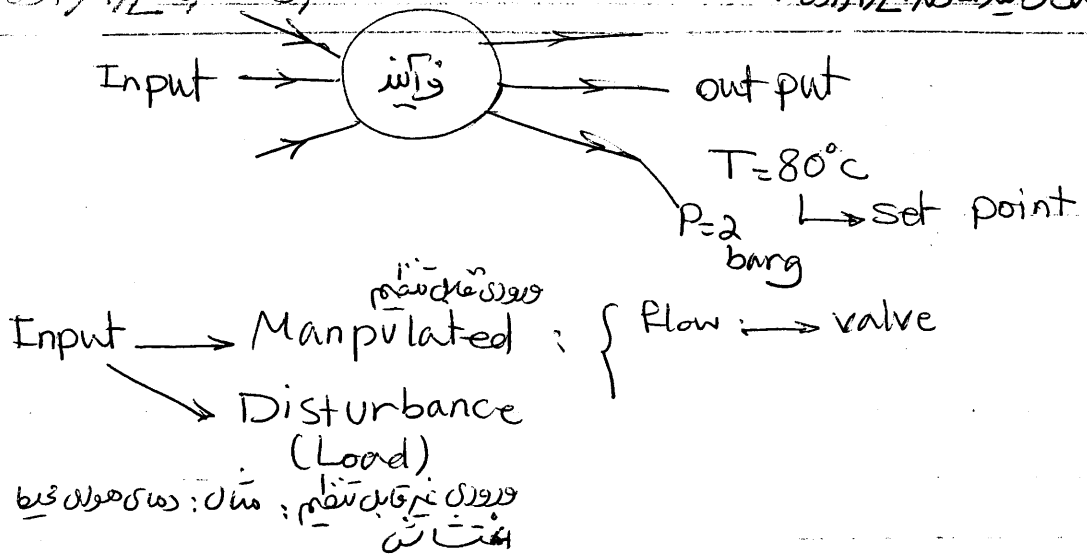 Input فرآیند output
T=80°c
P=2 → set point
barg
ورودی قابل تنظیم
Input → Manpulated : { Flow : → valve
Disturbance
(Load)
ورودی غیر قابل تنظیم : مثال : دمای هوای محیط
اغتشاش